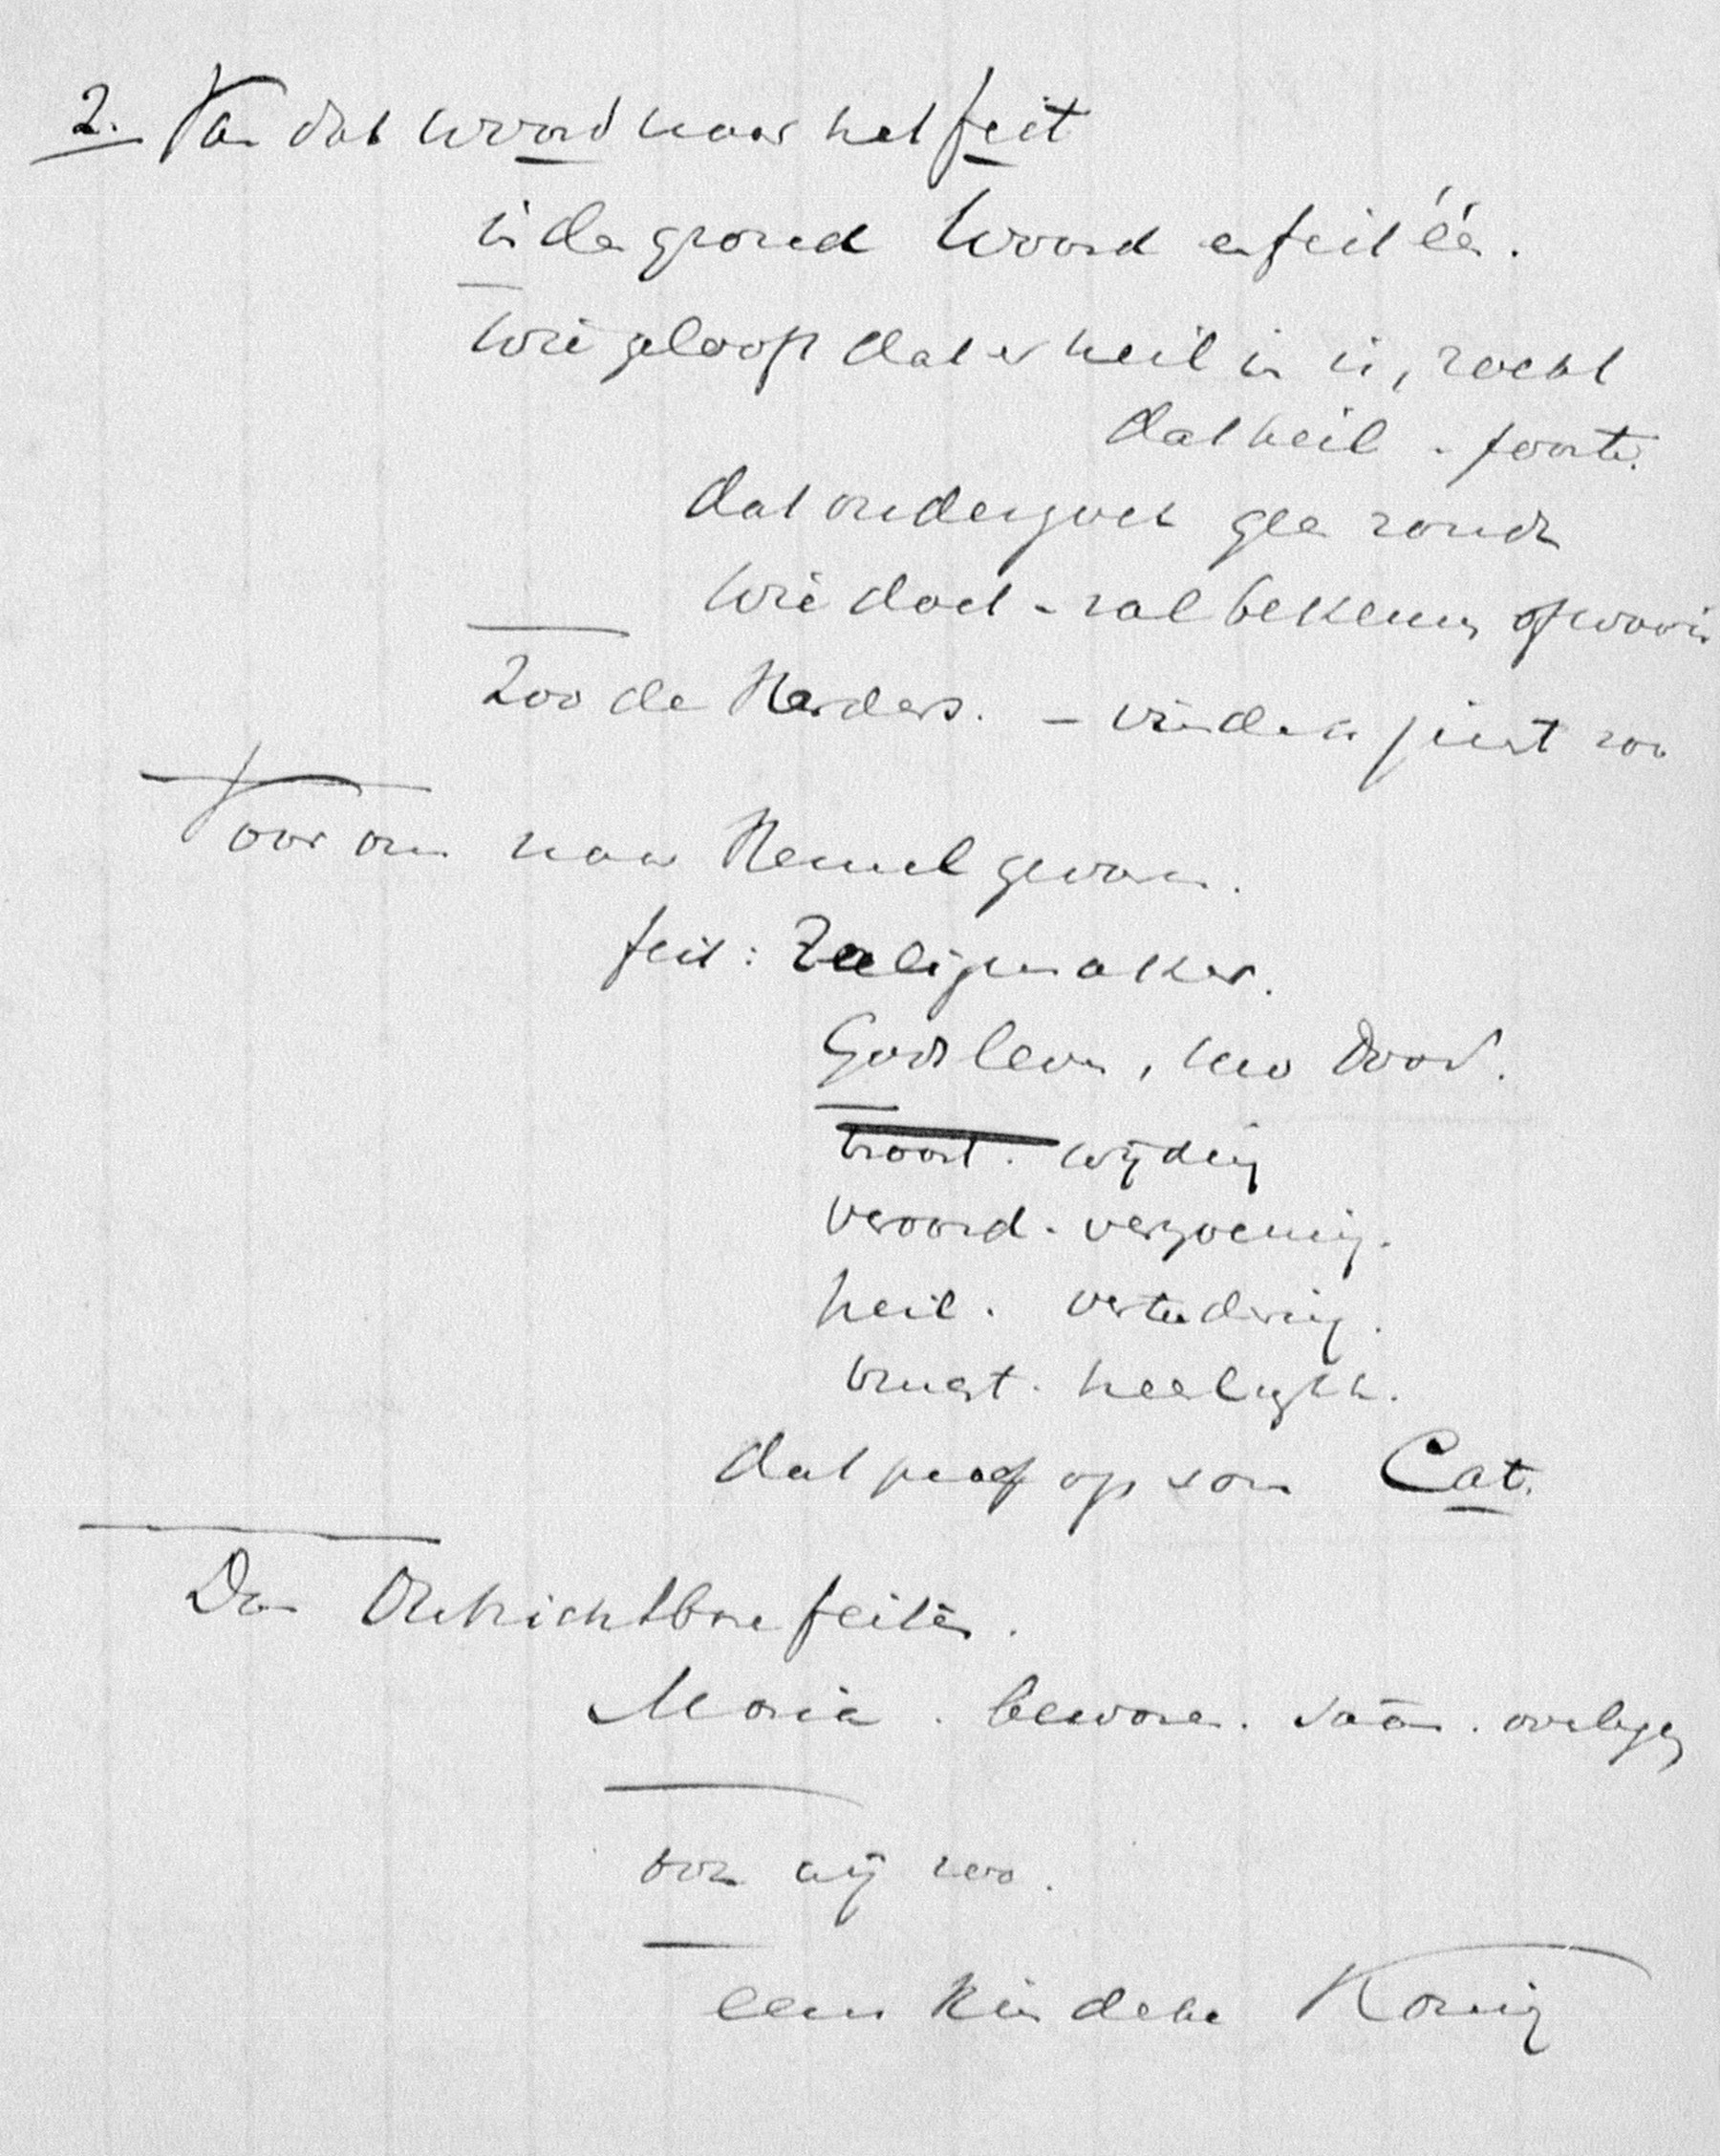 2. Van dat woord naar het feit
in den grond Woord en feit één.
Wie gelooft dat er heil in is, zoekt
dat heil - fonte.
dat ondergoet geen zonde
Wie doet - zal bekennen of
Zoo de Herders. - vinden juist zoo
Voor ons naar Hemel gevaren.
feit: Zaligmaker.
Gods leven, uw dood.
troost. wijding
veroord. verzoening.
heil.
komst. heerlijkh.
dat op van Cat.
Dan Onzichtbare feiten.
Maria. beware. overlegg
ook wij zoo.
een kindeke Koning